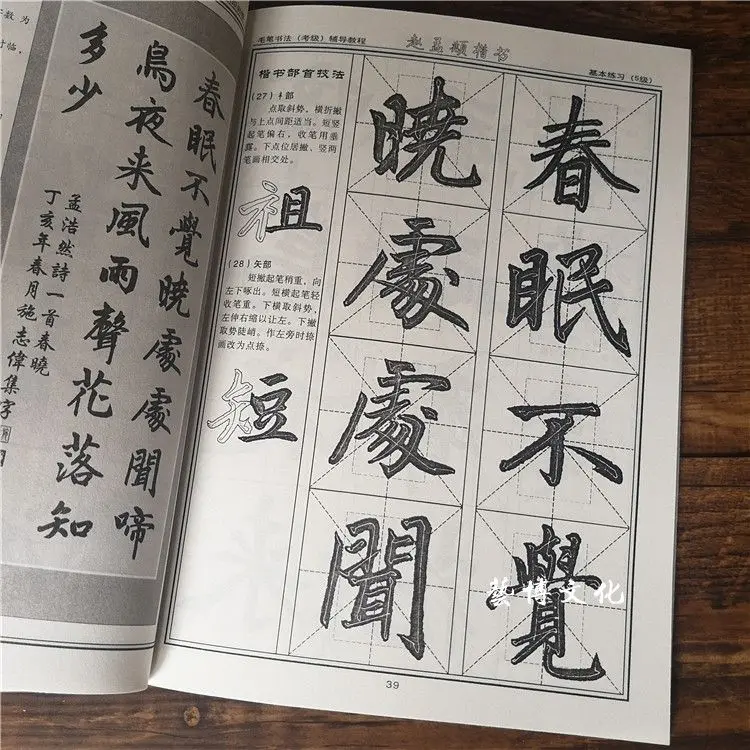 春眠不覺曉處處聞啼
鳥夜来風雨聲花落知
多少
孟浩然詩一首春曉
丁亥年春月施志偉集字
毛笔书法（考级）辅导教程
赵孟頫楷书
基本练习（5级）
春眠不覺
曉處處聞
楷书部首技法
（27）礻部
点取斜势，横折撇
与上点间距适当。短竖
起笔偏右，收笔用垂
露。下点位居撇、竖两
笔画相交处。
祖
（28）矢部
短撇起笔稍重，向
左下啄出。短横起笔轻
收笔重。下横取斜势，
左伸右缩以让左。下撇
取势陡峭。作左旁时捺
画改为点捺。
短
藝博文化
39